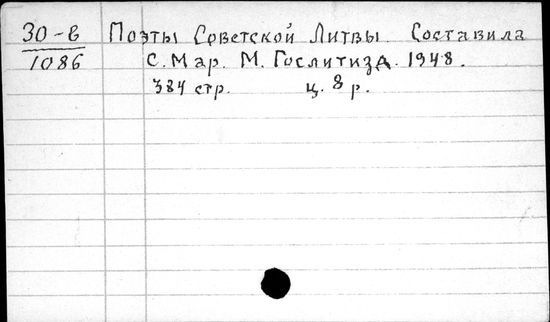 30-в Поэты Советской Литвы. Составила
1086 С. Мар. М. Гослитизд. 1948.
384 стр. ц. 8 р.